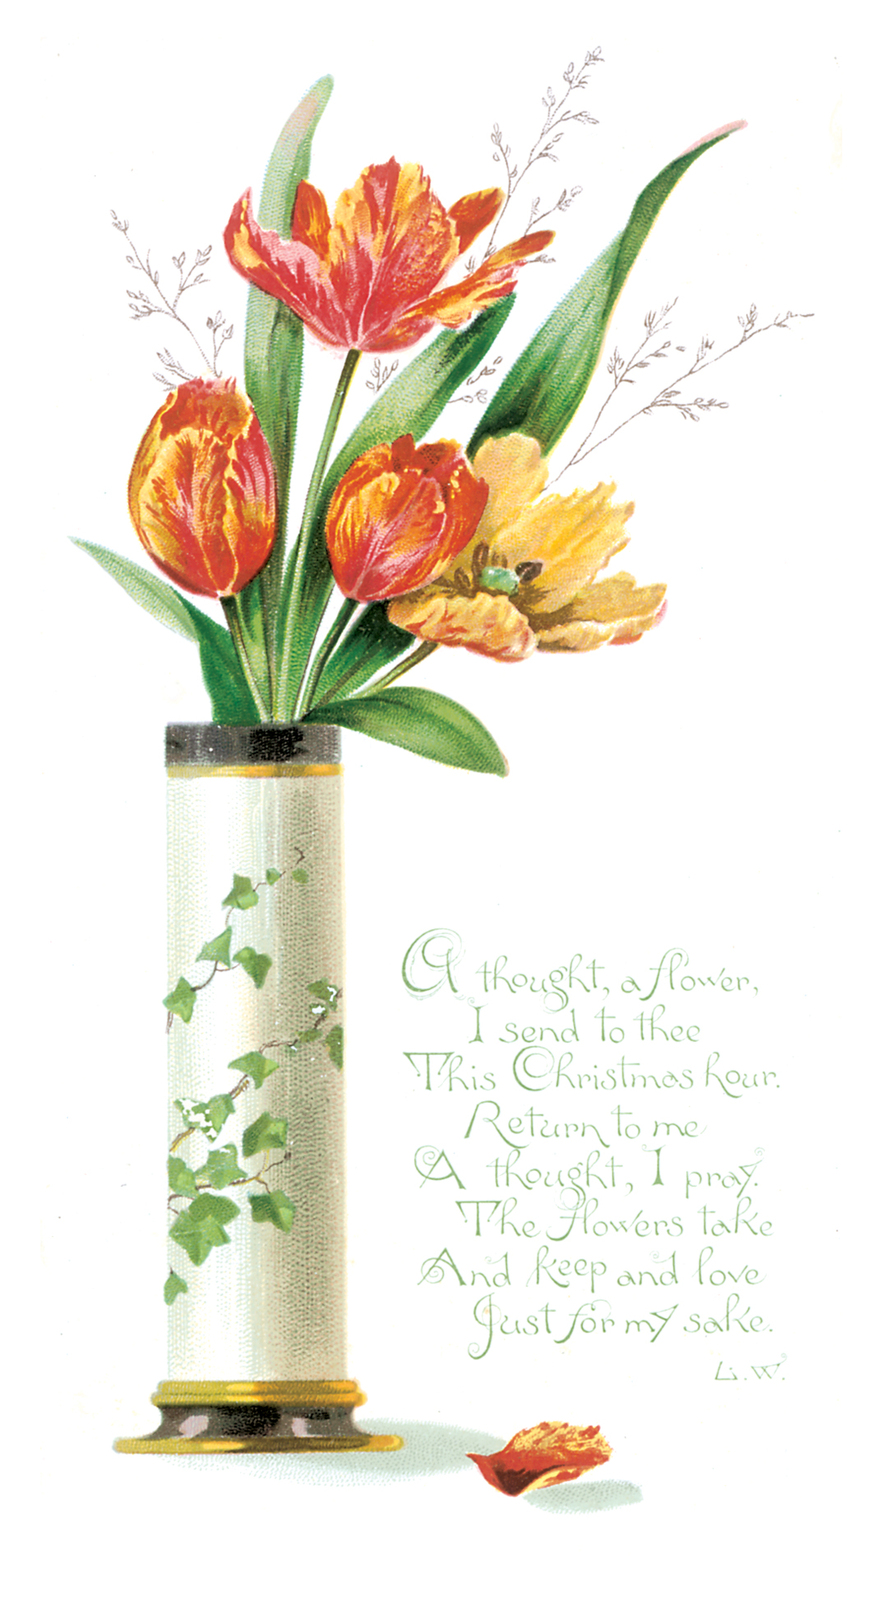 A thought, a flower,
I send to thee
This Christmas hour.
Return to me
A thought, I pray.
The flowers take
And keep and love
Just for my sake.
L.W.